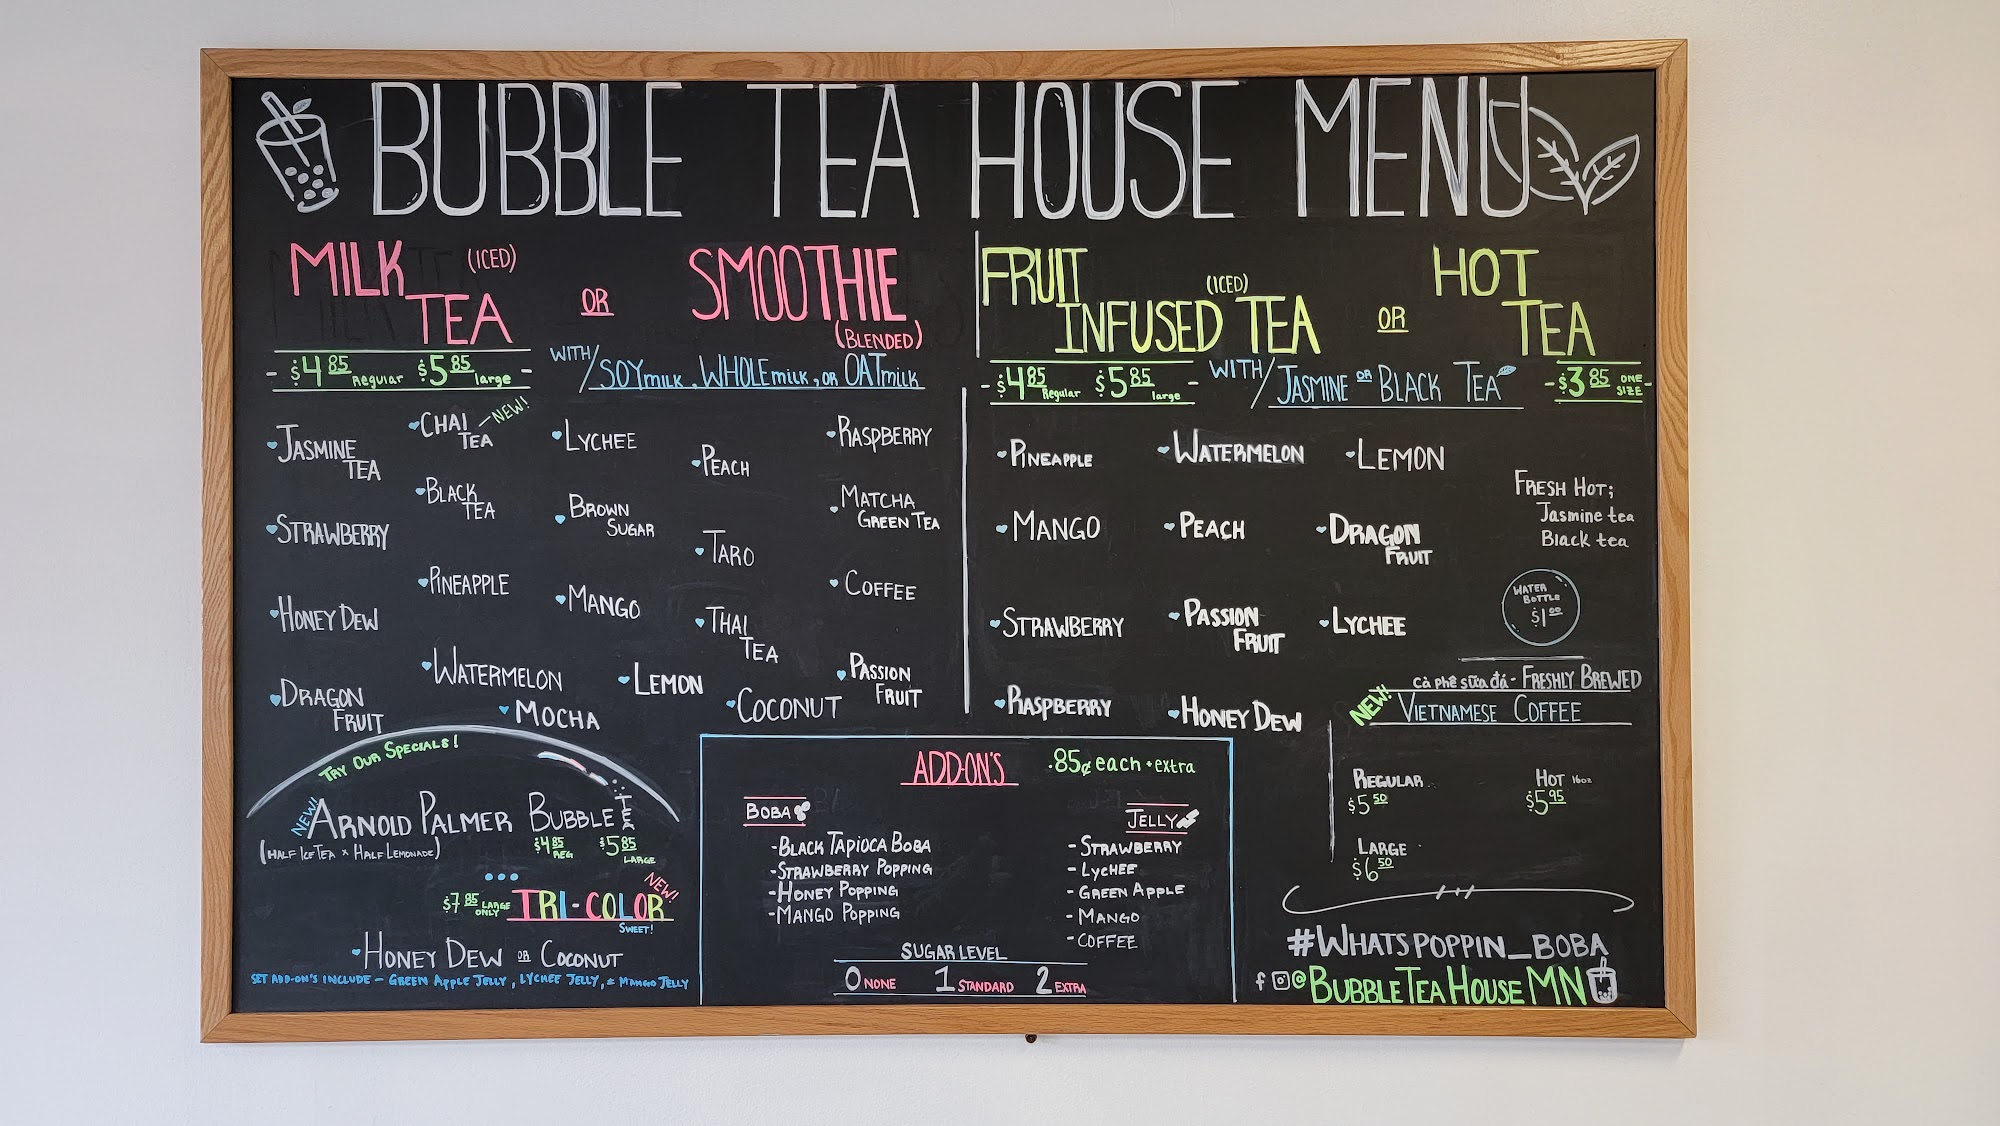 BUBBLE TEA HOUSE MENU
MILK TEA (ICED) OR SMOOTHIE (BLENDED)
- $4.85 Regular $5.85 large -
WITH/ SOY milk, WHOLE milk, OR OAT milk
JASMINE TEA
CHAI TEA - NEW!
LYCHEE
PEACH
RASPBERRY
BLACK TEA
BROWN SUGAR
MATCHA GREEN TEA
STRAWBERRY
TARO
PINEAPPLE
MANGO
COFFEE
HONEY DEW
THAI TEA
WATERMELON
LEMON
PASSION FRUIT
DRAGON FRUIT
MOCHA
COCONUT
FRUIT INFUSED (ICED) TEA OR HOT TEA
- $4.85 Regular $5.85 large -
WITH/ JASMINE OR BLACK TEA
- $3.85 ONE SIZE -
PINEAPPLE
WATERMELON
LEMON
MANGO
PEACH
DRAGON FRUIT
STRAWBERRY
PASSION FRUIT
LYCHEE
RASPBERRY
HONEY DEW
FRESH HOT;
Jasmine tea
Black tea
WATER BOTTLE
$1.00
NEW!
Cà phê sữa đá - FRESHLY BREWED
VIETNAMESE COFFEE
REGULAR
$5.50
HOT 16oz
$5.95
LARGE
$6.50
TRY OUR SPECIALS!
NEW!
ARNOLD PALMER BUBBLE TEA
(HALF ICE TEA x HALF LEMONADE)
$4.85 REG $5.85 LARGE
$7.85 LARGE ONLY TRI-COLOR NEW!
SWEET!
HONEY DEW OR COCONUT
SET ADD-ON'S INCLUDE - GREEN APPLE JELLY, LYCHEE JELLY, & MANGO JELLY
ADD-ON'S .85¢ each + extra
BOBA
- BLACK TAPIOCA BOBA
- STRAWBERRY POPPING
- HONEY POPPING
- MANGO POPPING
JELLY
- STRAWBERRY
- LYCHEE
- GREEN APPLE
- MANGO
- COFFEE
SUGAR LEVEL
0 NONE 1 STANDARD 2 EXTRA
#WHATSPOPPIN_BOBA
f @BUBBLETEAHOUSEMN